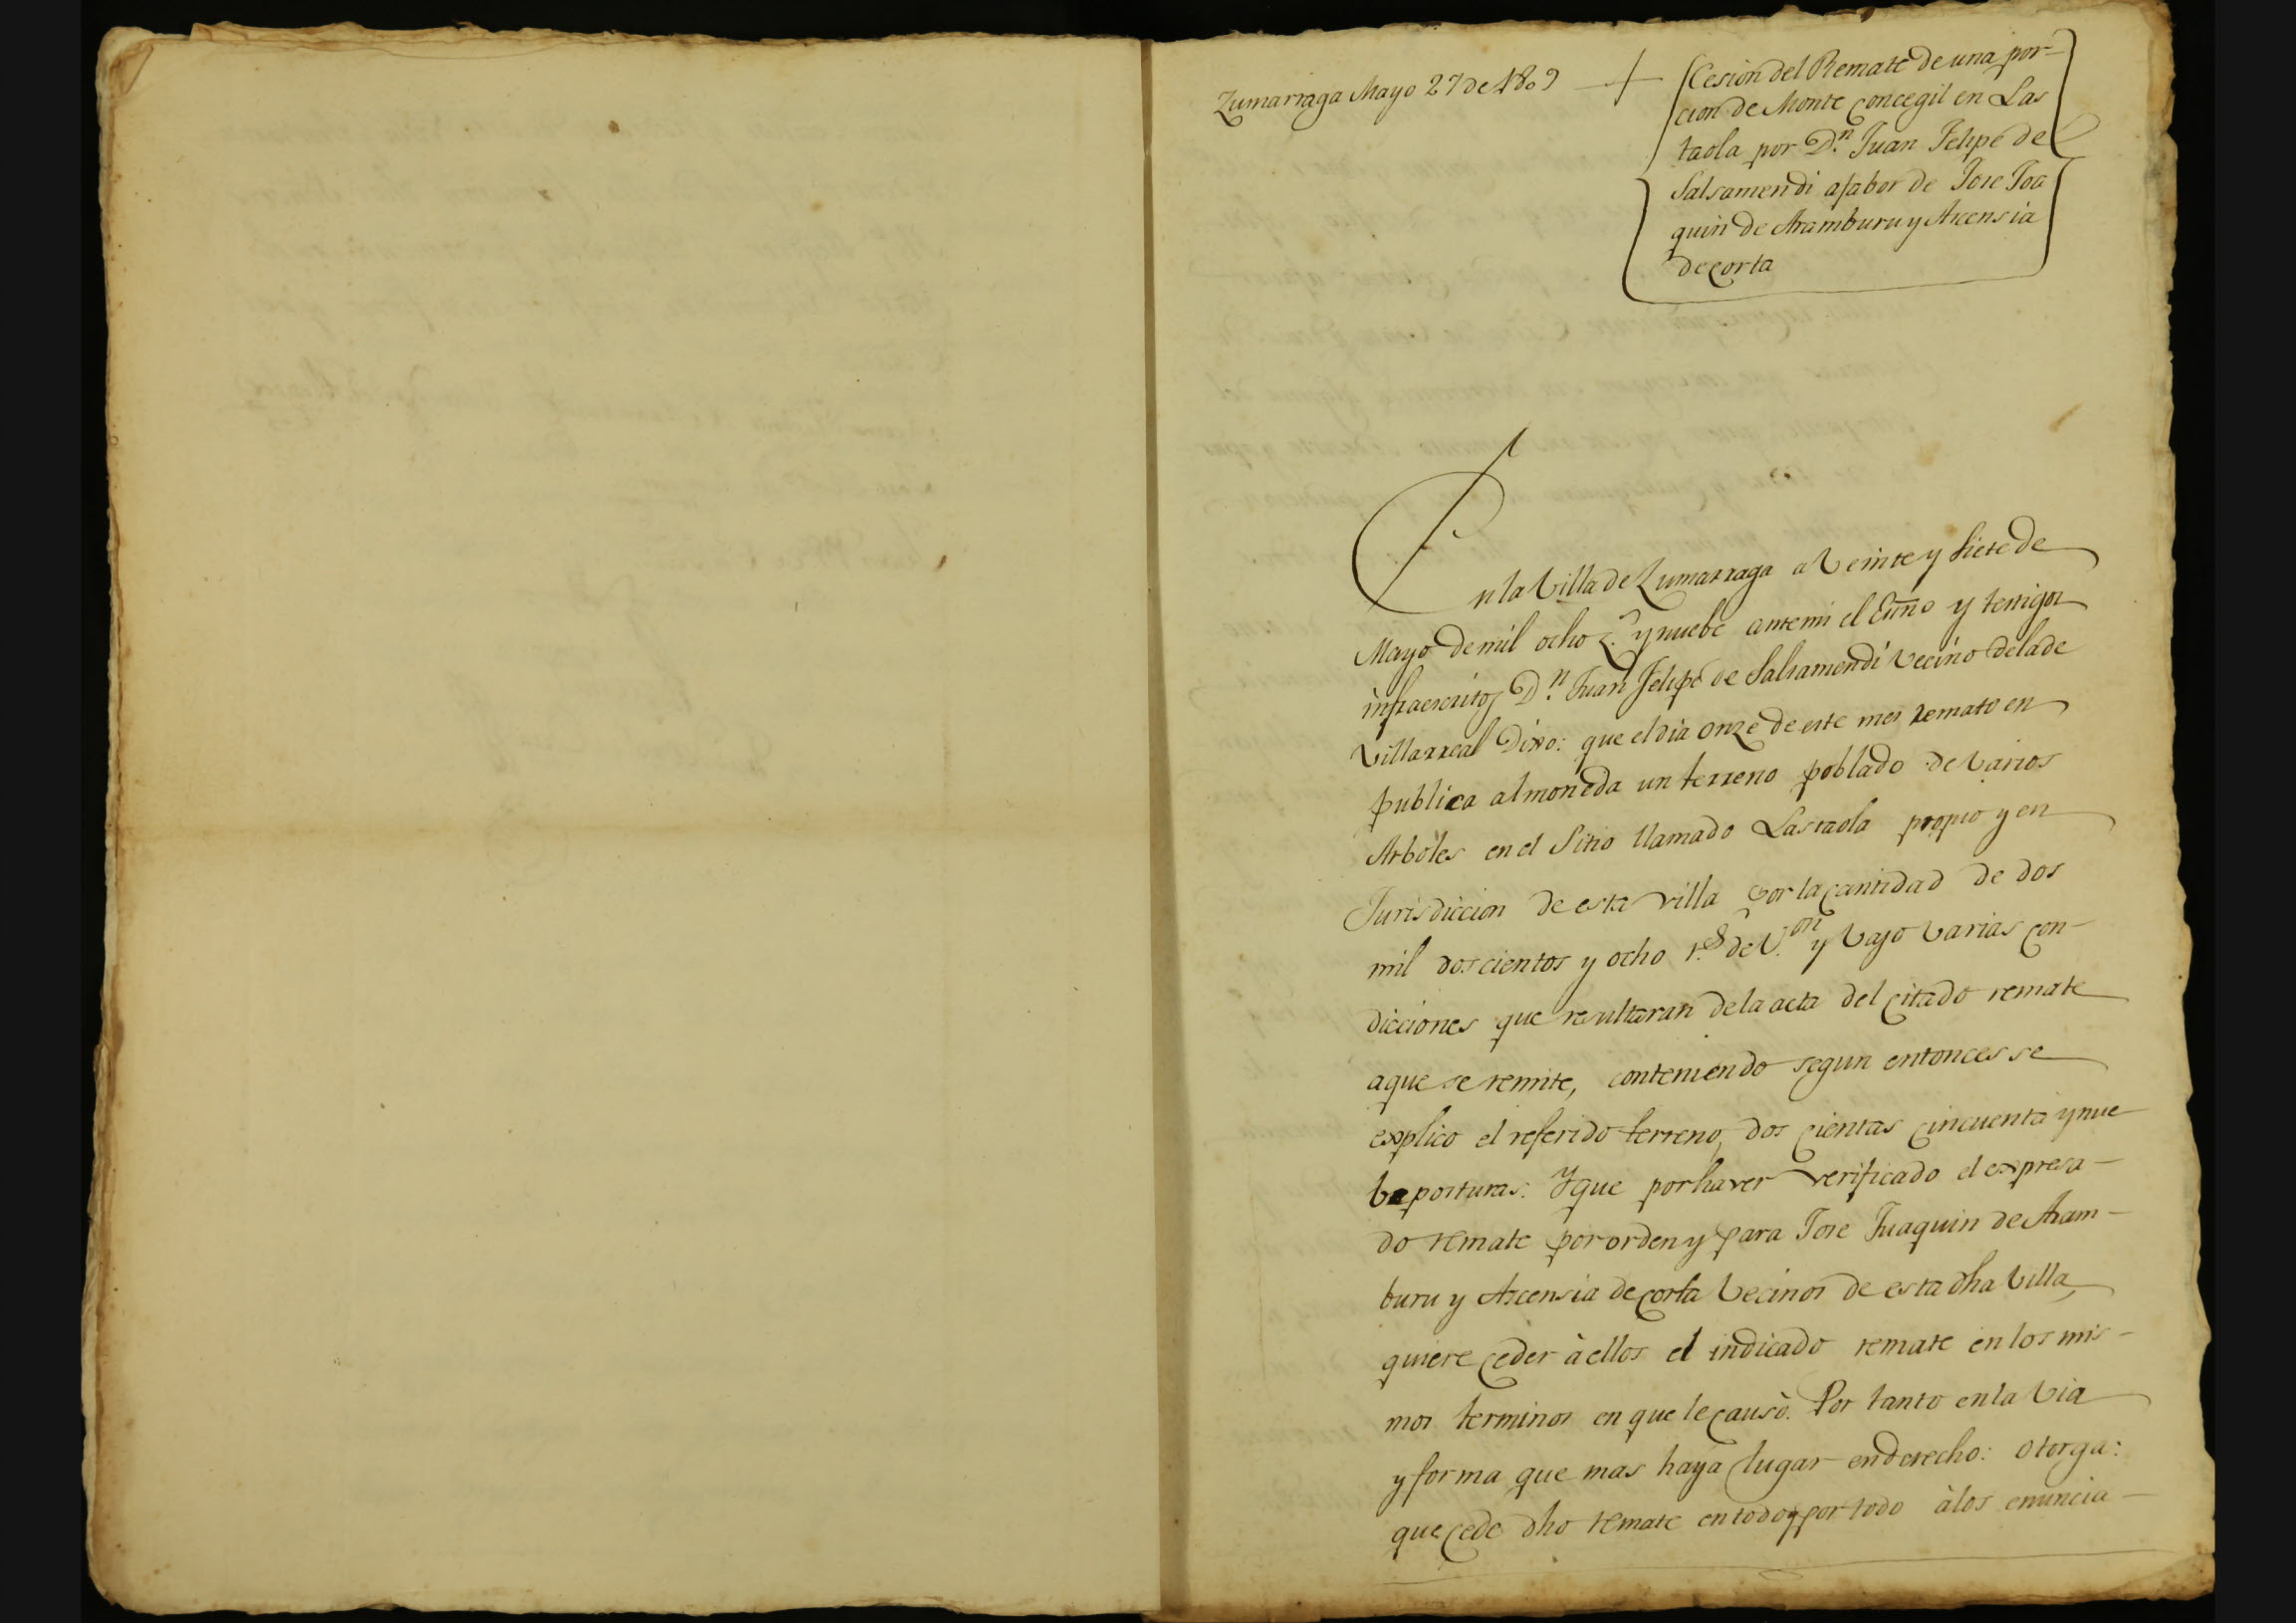 Zumarraga Mayo 27 de 1809
Cesion del Remate de una por-
cion de Monte Concegil en Las
taola por D.n Juan Felipe de
Salsamendi afabor de Jose Joa
quin de Aramburu y Ascensia
de Corta
En la Villa de Zumarraga a Veinte y Siete de
Mayo de mil ocho z.s y nuebe ante mi el Essno y testigos
infraescritos D.n Juan Felipe de Salsamendi Vecino dela de
Villarreal Dixo: que el dia onze de este mes remato en
publica almoneda un terreno poblado de Varios
Arboles en el Sitio llamado Lastaola propio y en
Jurisdiccion de esta Villa por la Cantidad de dos
mil dos cientos y ocho r.s de V.on y Vajo Varias Con-
dicciones que resultaran dela acta del Citado remate
a que se remite, conteniendo segun entonces se
explico el referido terreno, dos Cientas Cincuenta y nue
be posturas: Y que por haver Verificado el expresa-
do remate por orden y para Jose Juaquin de Aram-
buru y Ascensia de Corta Vecinos de esta dha Villa,
quiere Ceder à ellos el indicado remate en los mis-
mos terminos en que le Causò. Por tanto en la Via
y forma que mas haya lugar en derecho: otorga:
que Cede dho remate en todo y por todo à los enuncia-